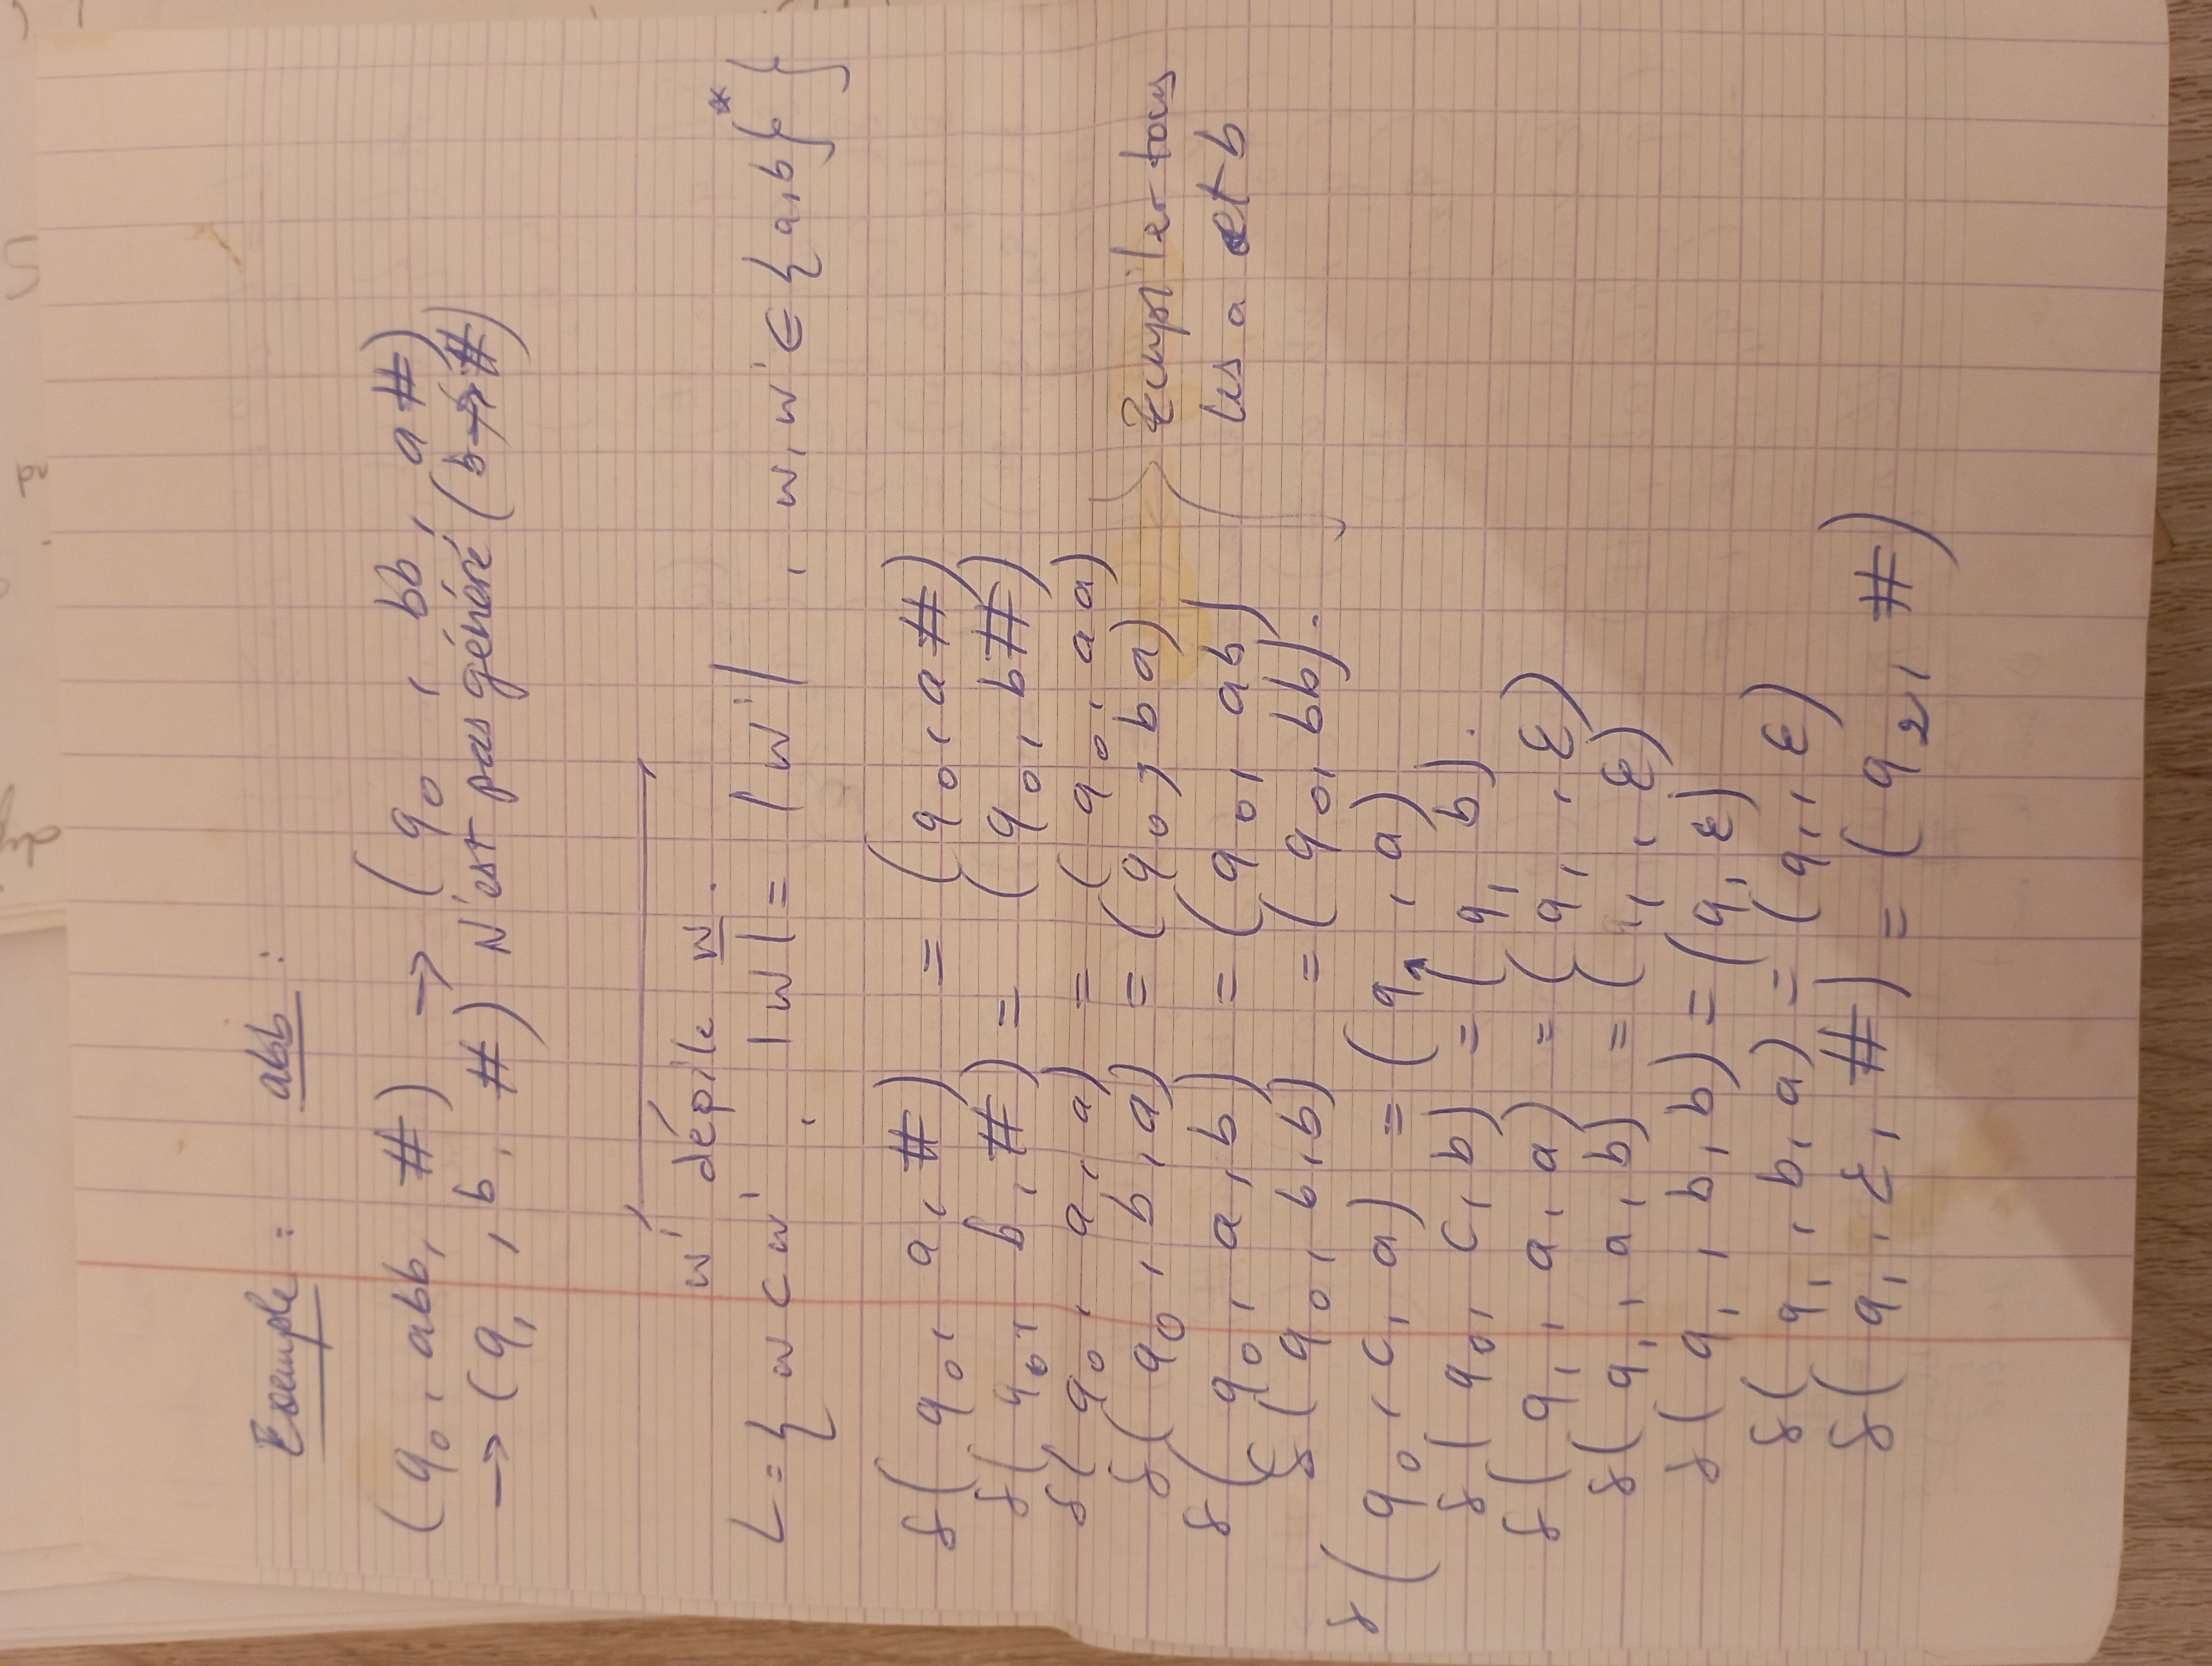 Exemple : abb :
(q₀, abb, #) → (q₀, bb, a#)
→ (q₁, b, #) N'est pas généré (b ↛ #)
w' dépile w.
L = { w c w', |w| = |w'|, w, w' ∈ {a,b}* }
δ(q₀, a, #) = (q₀, a#)
δ(q₀, b, #) = (q₀, b#)
δ(q₀, a, a) = (q₀, aa)
δ(q₀, b, a) = (q₀, ba)
Empiler tous
δ(q₀, a, b) = (q₀, ab)
les a et b
δ(q₀, b, b) = (q₀, bb).
δ(q₀, c, a) = (q₁, a)
δ(q₀, c, b) = (q₁ b).
δ(q₁, a, a) = (q₁, ε)
δ(q₁, a, b) = (q₁, ε)
δ(q₁, b, b) = (q₁ ε)
δ(q₁, b, a) = (q₁, ε)
δ(q₁, ε, #) = (q₂, #)